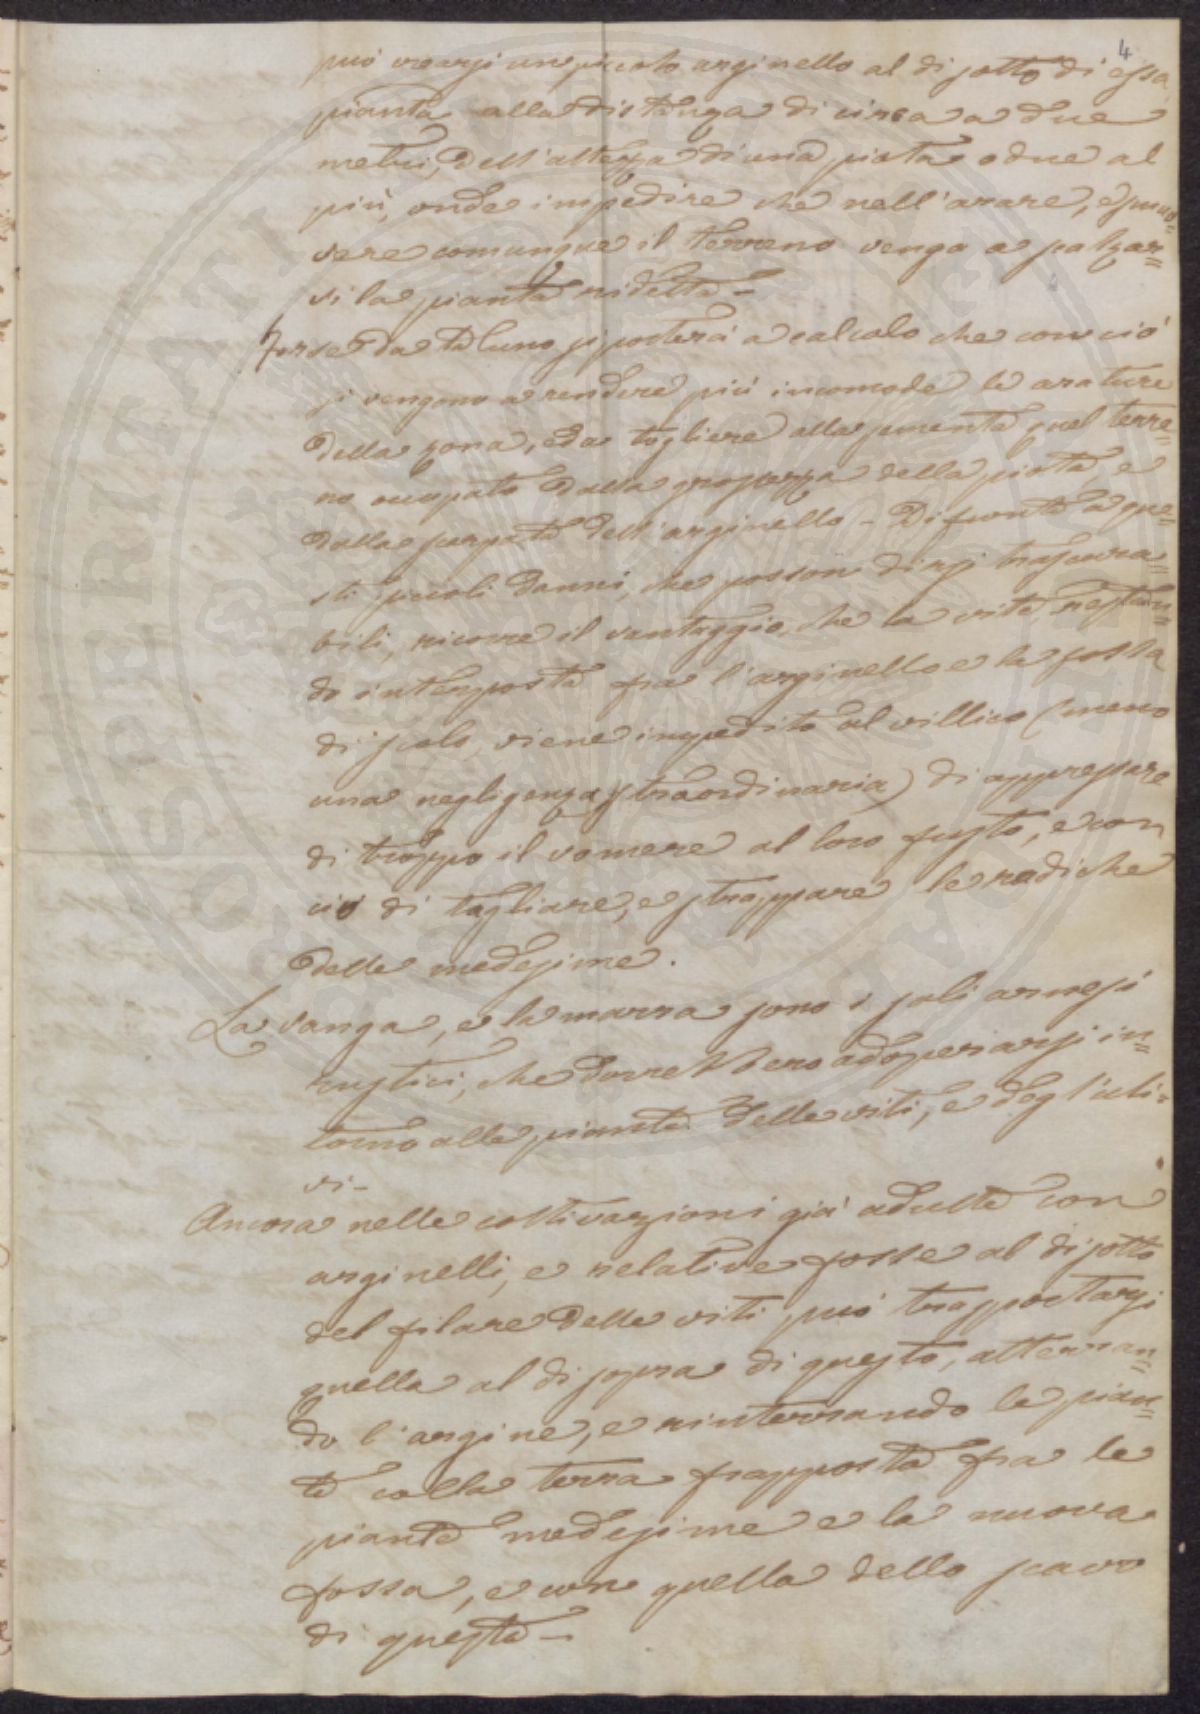 4
può crearsi un piccolo arginello al di sotto di essa
pianta alla distanza di circa a due
metri, dell'altezza di una piota o due al
più, onde impedire che nell'arare, e smuo=
vere comunque il terreno venga a scalzar=
vi la pianta ridetta -
Forse da taluno si porterà a calcolo che con ciò
si vengono a rendere più incomode le arature
della zona, ed a togliere alla sementa quel terre=
no occupato dalla grossezza della piota, e
dalla scarpata dell'arginello - Di fronte a que=
sti piccoli danni, che posson dirsi trascura=
bili, ricorre il vantaggio, che la vite, restan=
do interposta fra l'arginello e la fossa
di scolo, viene impedito al villico (meno
una negligenza straordinaria) di appressare
di troppo il vomere al loro fusto, e con
ciò di tagliare, e strappare le radiche
delle medesime.
La vanga, e la marra sono i soli arnesi
rustici, che dovrebbero adoperarsi in=
torno alle piante delle viti, e degl'uli=
vi -
Ancora nelle coltivazioni già adulte con
arginelli, e relative fosse al di sotto
del filare delle viti può trasportarsi
quella al di sopra di questo, atterran=
do l'argine, e rinterrando le pian=
te colla terra frapposta fra le
piante medesime e la nuova
fossa, e con quella dello scavo
di questa -